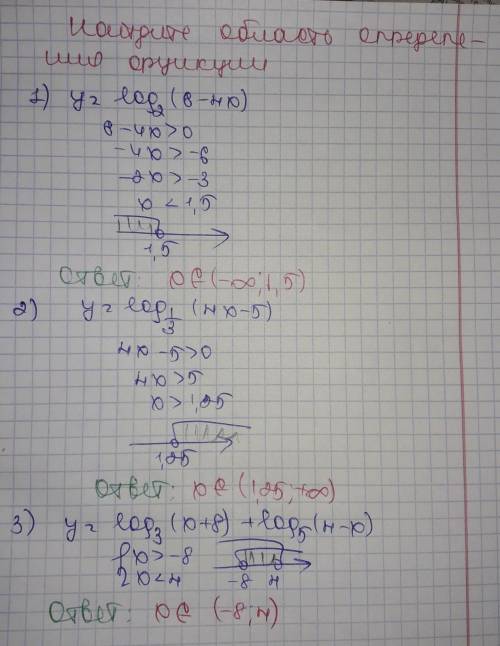 Найдите область определе-
ния функции
1) y = log₂(6-4x)
6-4x>0
-4x>-6
-2x>-3
x < 1,5
1,5
Ответ: x∈(-∞;1,5)
2) y = log_{1/3} (4x-5)
4x-5>0
4x>5
x>1,25
1,25
Ответ: x∈(1,25;+∞)
3) y = log₃(x+8) + log₅(4-x)
{x>-8
x<4
-8 4
Ответ: x∈ (-8;4)